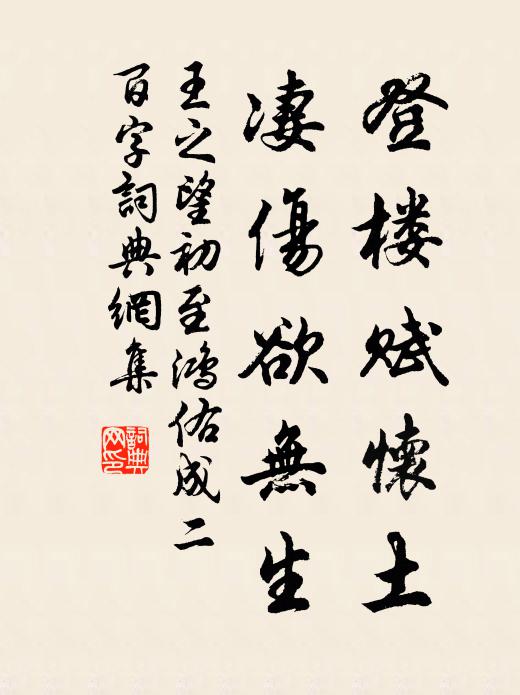 登楼赋懷土
凄傷欲無生
王之望初至鴻佑成二
百字詞典網集
詞典网印